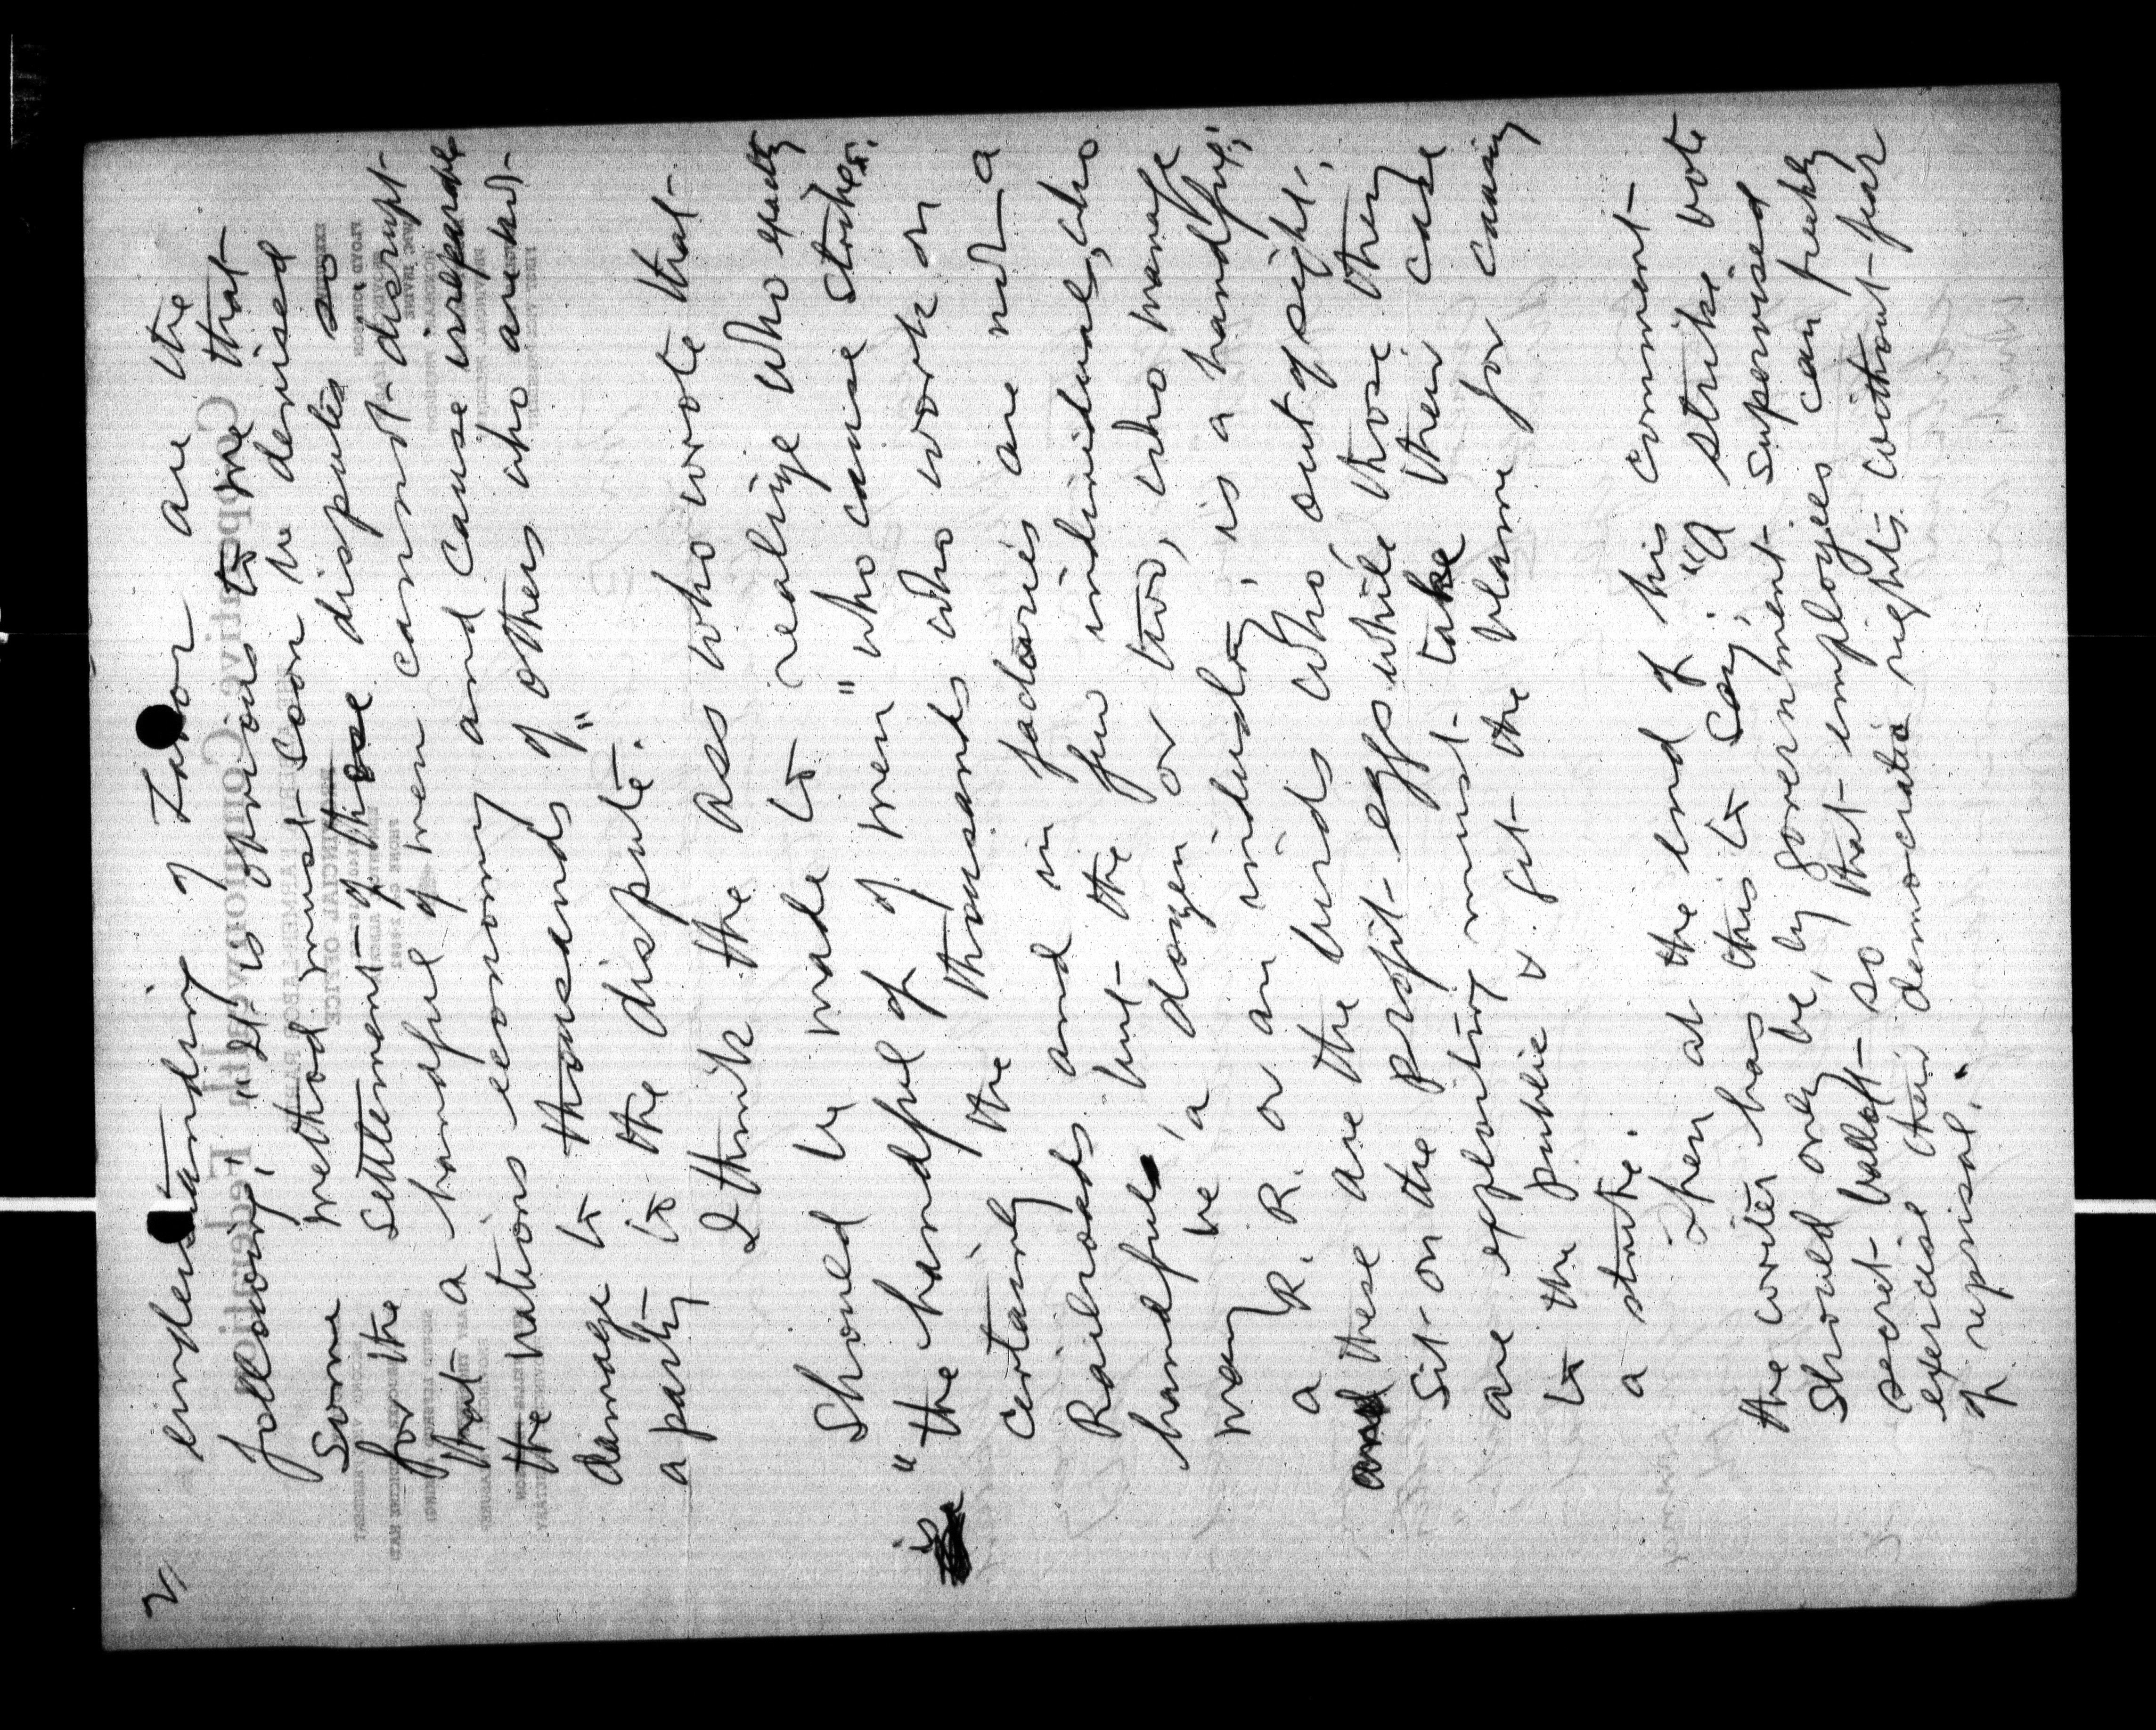 2/
understanding of Labor are the
following; "It is obvious to me that
some method must soon be devised
for the settlement of those disputes so
that a handful of men cannot disrupt
the nations economy and cause irreparable
damage to thousands of others who are not
a party to the dispute."
I think the ass who wrote that
should be made to realize who exactly
is "the handful of men" who cause strikes.
certainly the thousands who work on
Railroads and in factories are not a
handful but the few individuals, who
may be a dozen or two, who manage
a R.R. or an industry, is a handful;
these are the birds who out of sight,
sit on the profit eggs while those they
are exploiting must take their case
to the public & get the blame for causing
a strike.
Then at the end of his comment
the writer has this to say; "A strike vote
should only be, by government supervised
secret ballot so that employees can freely
exercise their democratic rights without fear
of reprisal.
Cooperative Commonwealth Federation
PROVINCIAL OFFICE